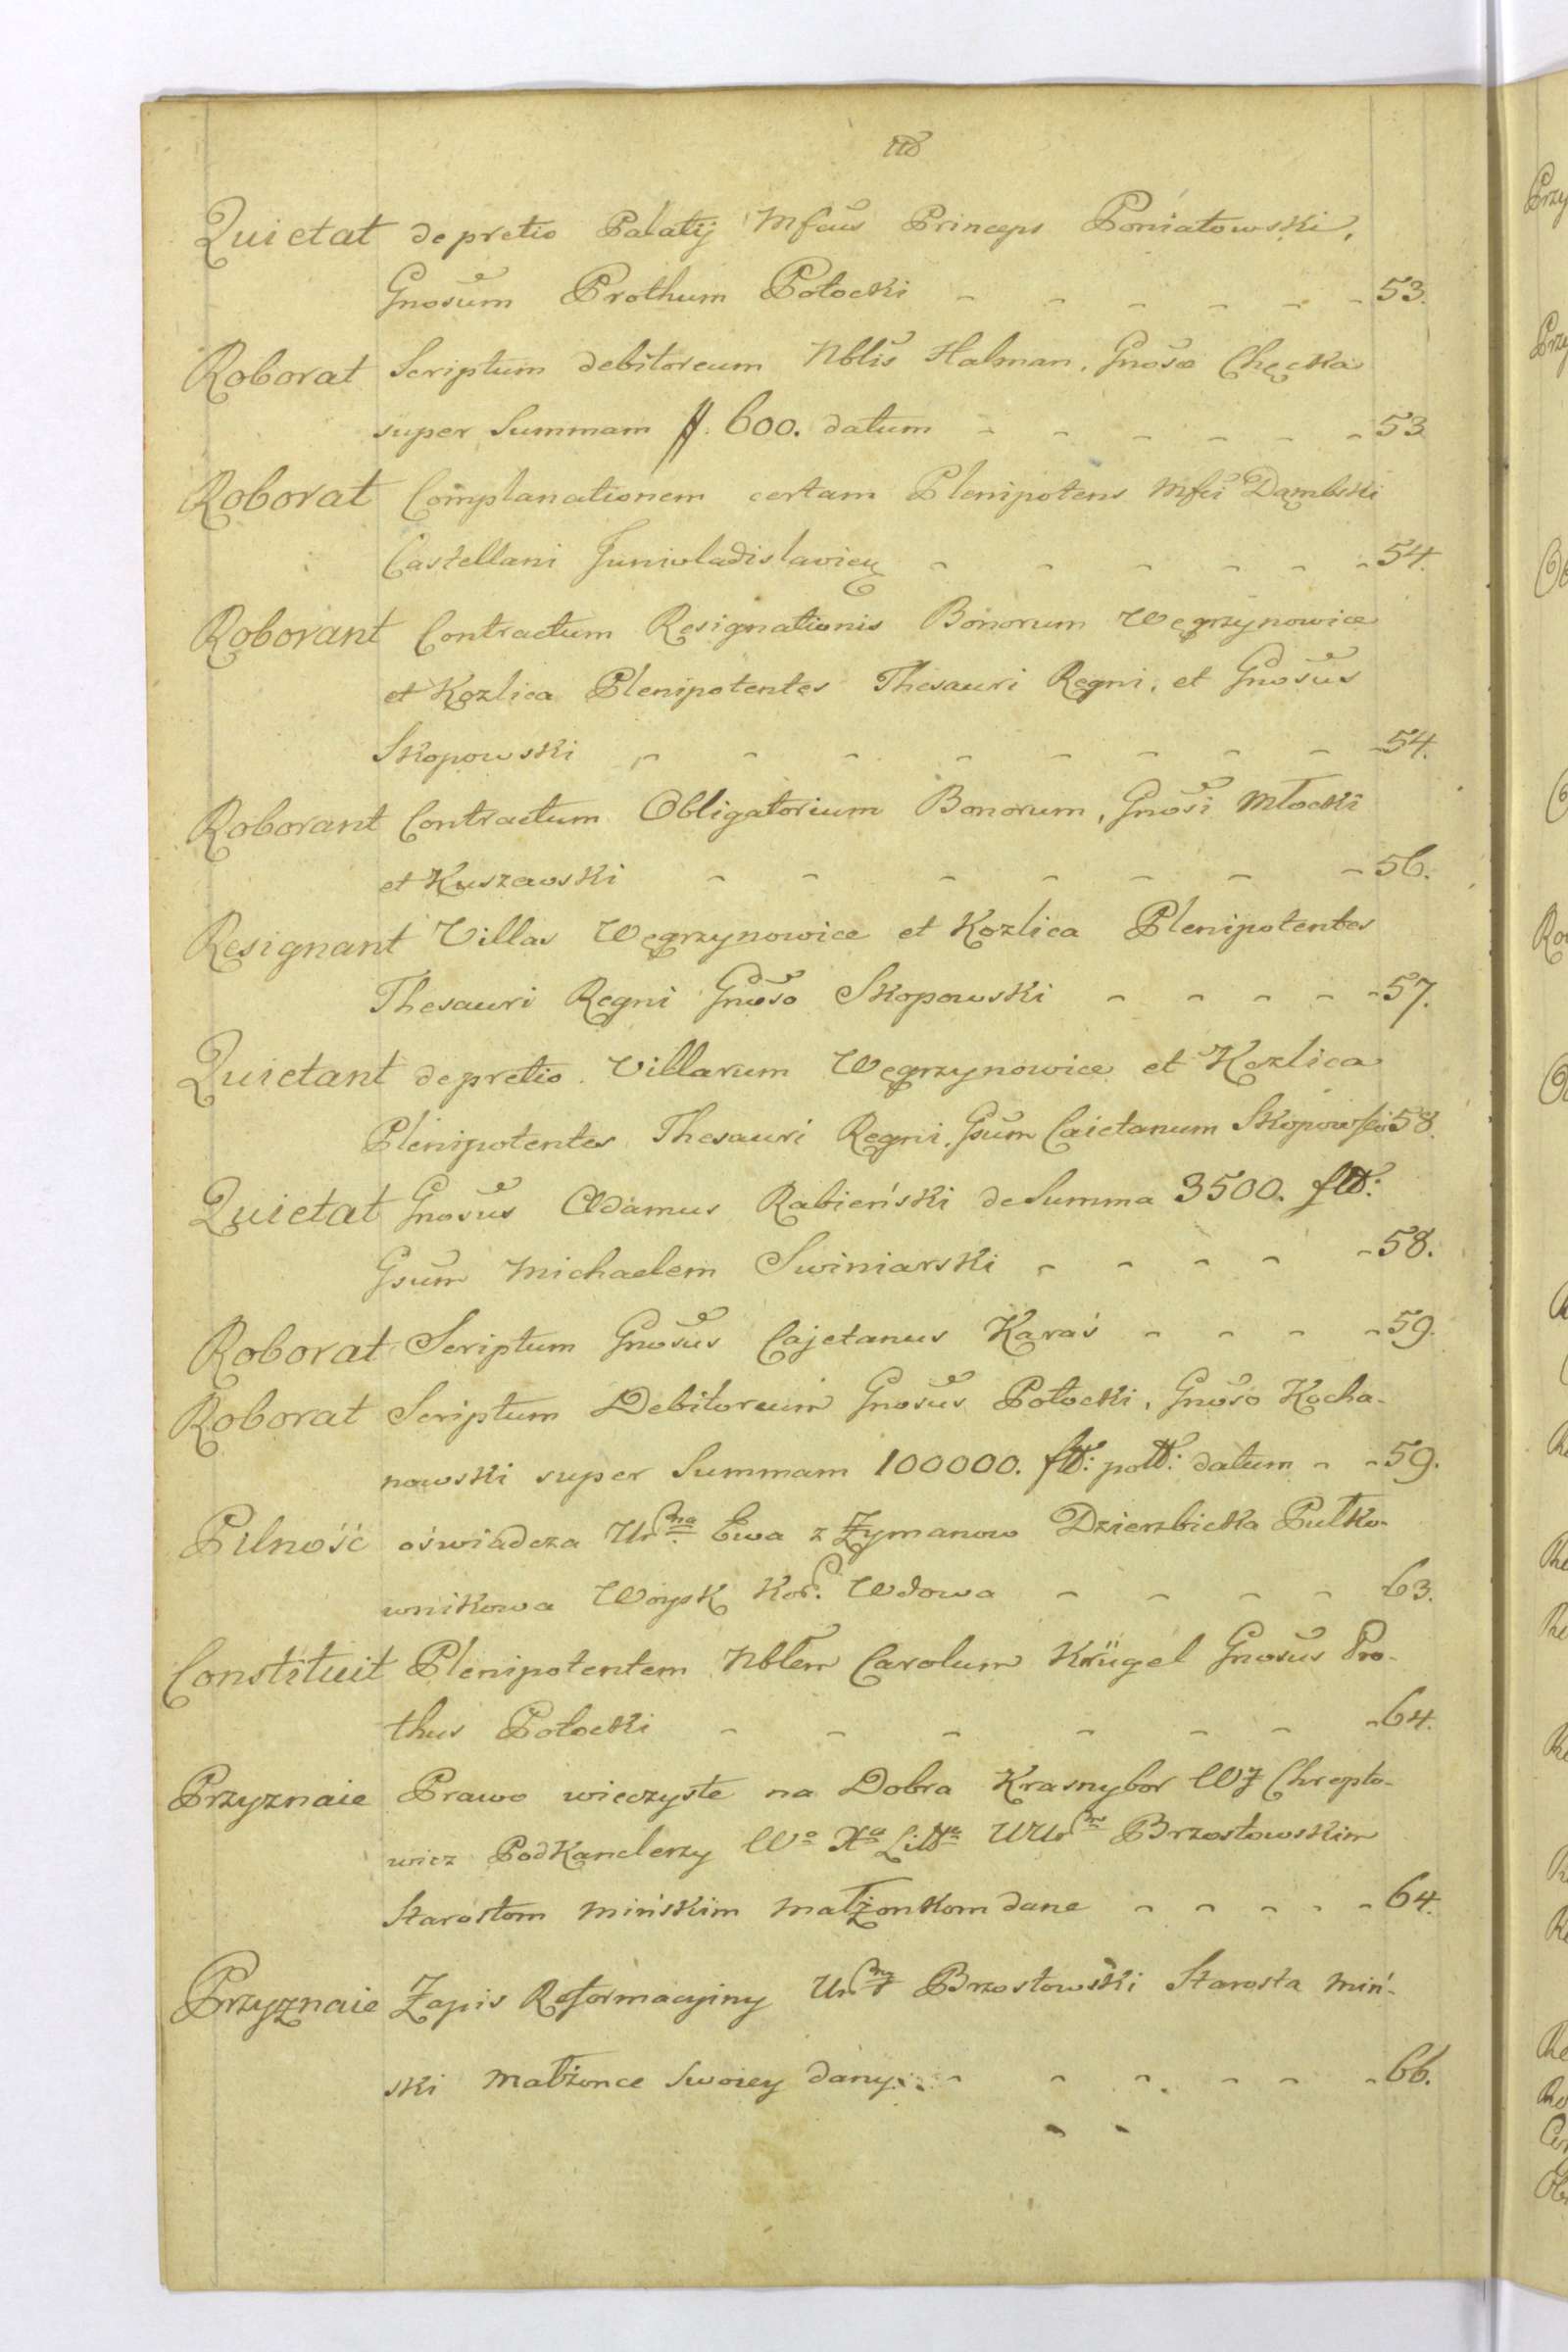 Quietat de pretio Palatij Mfcus Princeps Poniatowski,
Gnosum Prothum Potocki - - - - - - 53.
Roborat Scriptum debitoreum Nblis Halman, Gnosæ Chęcka
super Summam ff. 600. datum - - - - - - 53
Roborat Complanationem certam Plenipotens Mfci Dąmbski
Castellani Juniwladislavien - - - - - - 54.
Roborant Contractum Resignationis Bonorum Węgrzynowice
et Kozlica Plenipotentes Thesauri Regni, et Gnosus
Skopowski - - - - - - - - 54.
Roborant Contractum Obligatorium Bonorum, Gnosi Młocki
et Kuszewski - - - - - - - 56.
Resignant Villas Węgrzynowice et Kozlica Plenipotentes
Thesauri Regni Gnoso Skopowski - - - - - 57.
Quietant de pretio Villarum Węgrzynowice et Kozlica
Plenipotentes Thesauri Regni, Gsum Caietanum Skopowski 58.
Quietat Gnosus Adamus Rabieński de Summa 3500. fltt:
Gsum Michaelem Swiniarski - - - - - 58.
Roborat Scriptum Gnosus Cajetanus Karaś - - - - 59.
Roborat Scriptum Debitoreum Gnosus Potocki, Gnoso Kocha-
nowski super Summam 100000. fltt: poltt: datum - - 59.
Pilność oświadcza Urna Ewa z Zymanow Dzierzbicka Pułko-
wnikowa Woysk Kor. Wdowa - - - - 63.
Constituit Plenipotentem Nblem Carolum Krügel Gnosus Pro-
thus Potocki - - - - - - - 64.
Przyznaie Prawo wieczyste na Dobra Krasnybor WJ Chrepto-
wicz PodKanclerzy Wo Xa Litt Brzostowskim
Starostom Mińskim Małżonkom dane - - - - - 64.
Przyznaie Zapis Reformacyiny Brzostowski Starosta Miń-
ski Małżonce Swoiey dany - - - - - - 66.